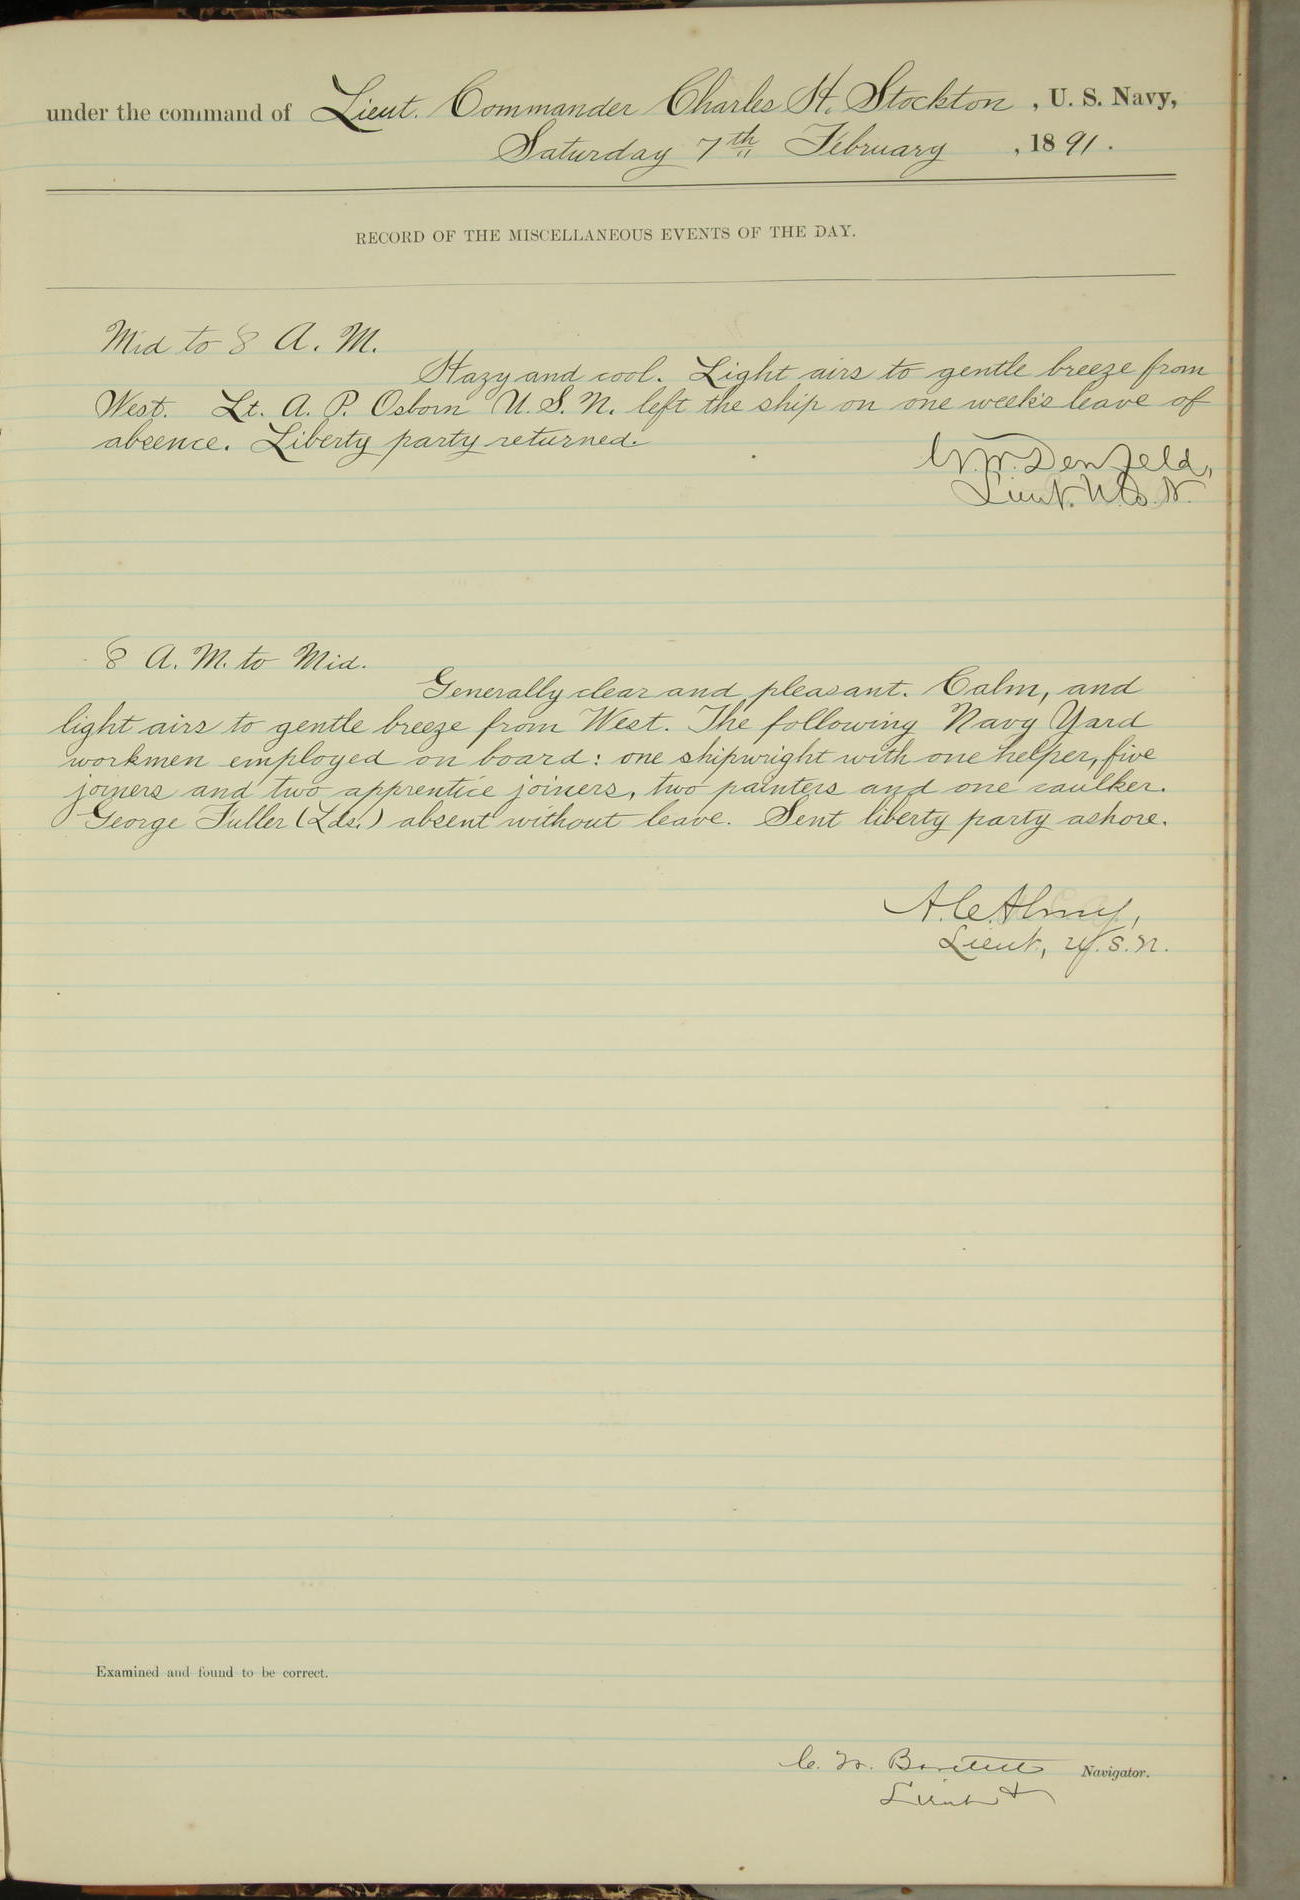 under the command of Lieut. Commander Charles H. Stockton, U. S. Navy,
Saturday 7th February, 1891.
RECORD OF THE MISCELLANEOUS EVENTS OF THE DAY.
Mid to 8 A. M.
Hazy and cool. Light airs to gentle breeze from
West. Lt. A. P. Osborn U. S. N. left the ship on one week's leave of
absence. Liberty party returned.
G. W. Denfeld,
Lieut. U. S. N.
8 A. M. to Mid.
Generally clear and pleasant. Calm, and
light airs to gentle breeze from West. The following Navy Yard
workmen employed on board: one shipwright with one helper, five
joiners and two apprentice joiners, two painters and one caulker.
George Fuller (Lds.) absent without leave. Sent liberty party ashore.
A. C. Almy,
Lieut, U. S. N.
Examined and found to be correct.
C. W. Bartlett Navigator.
Lieut